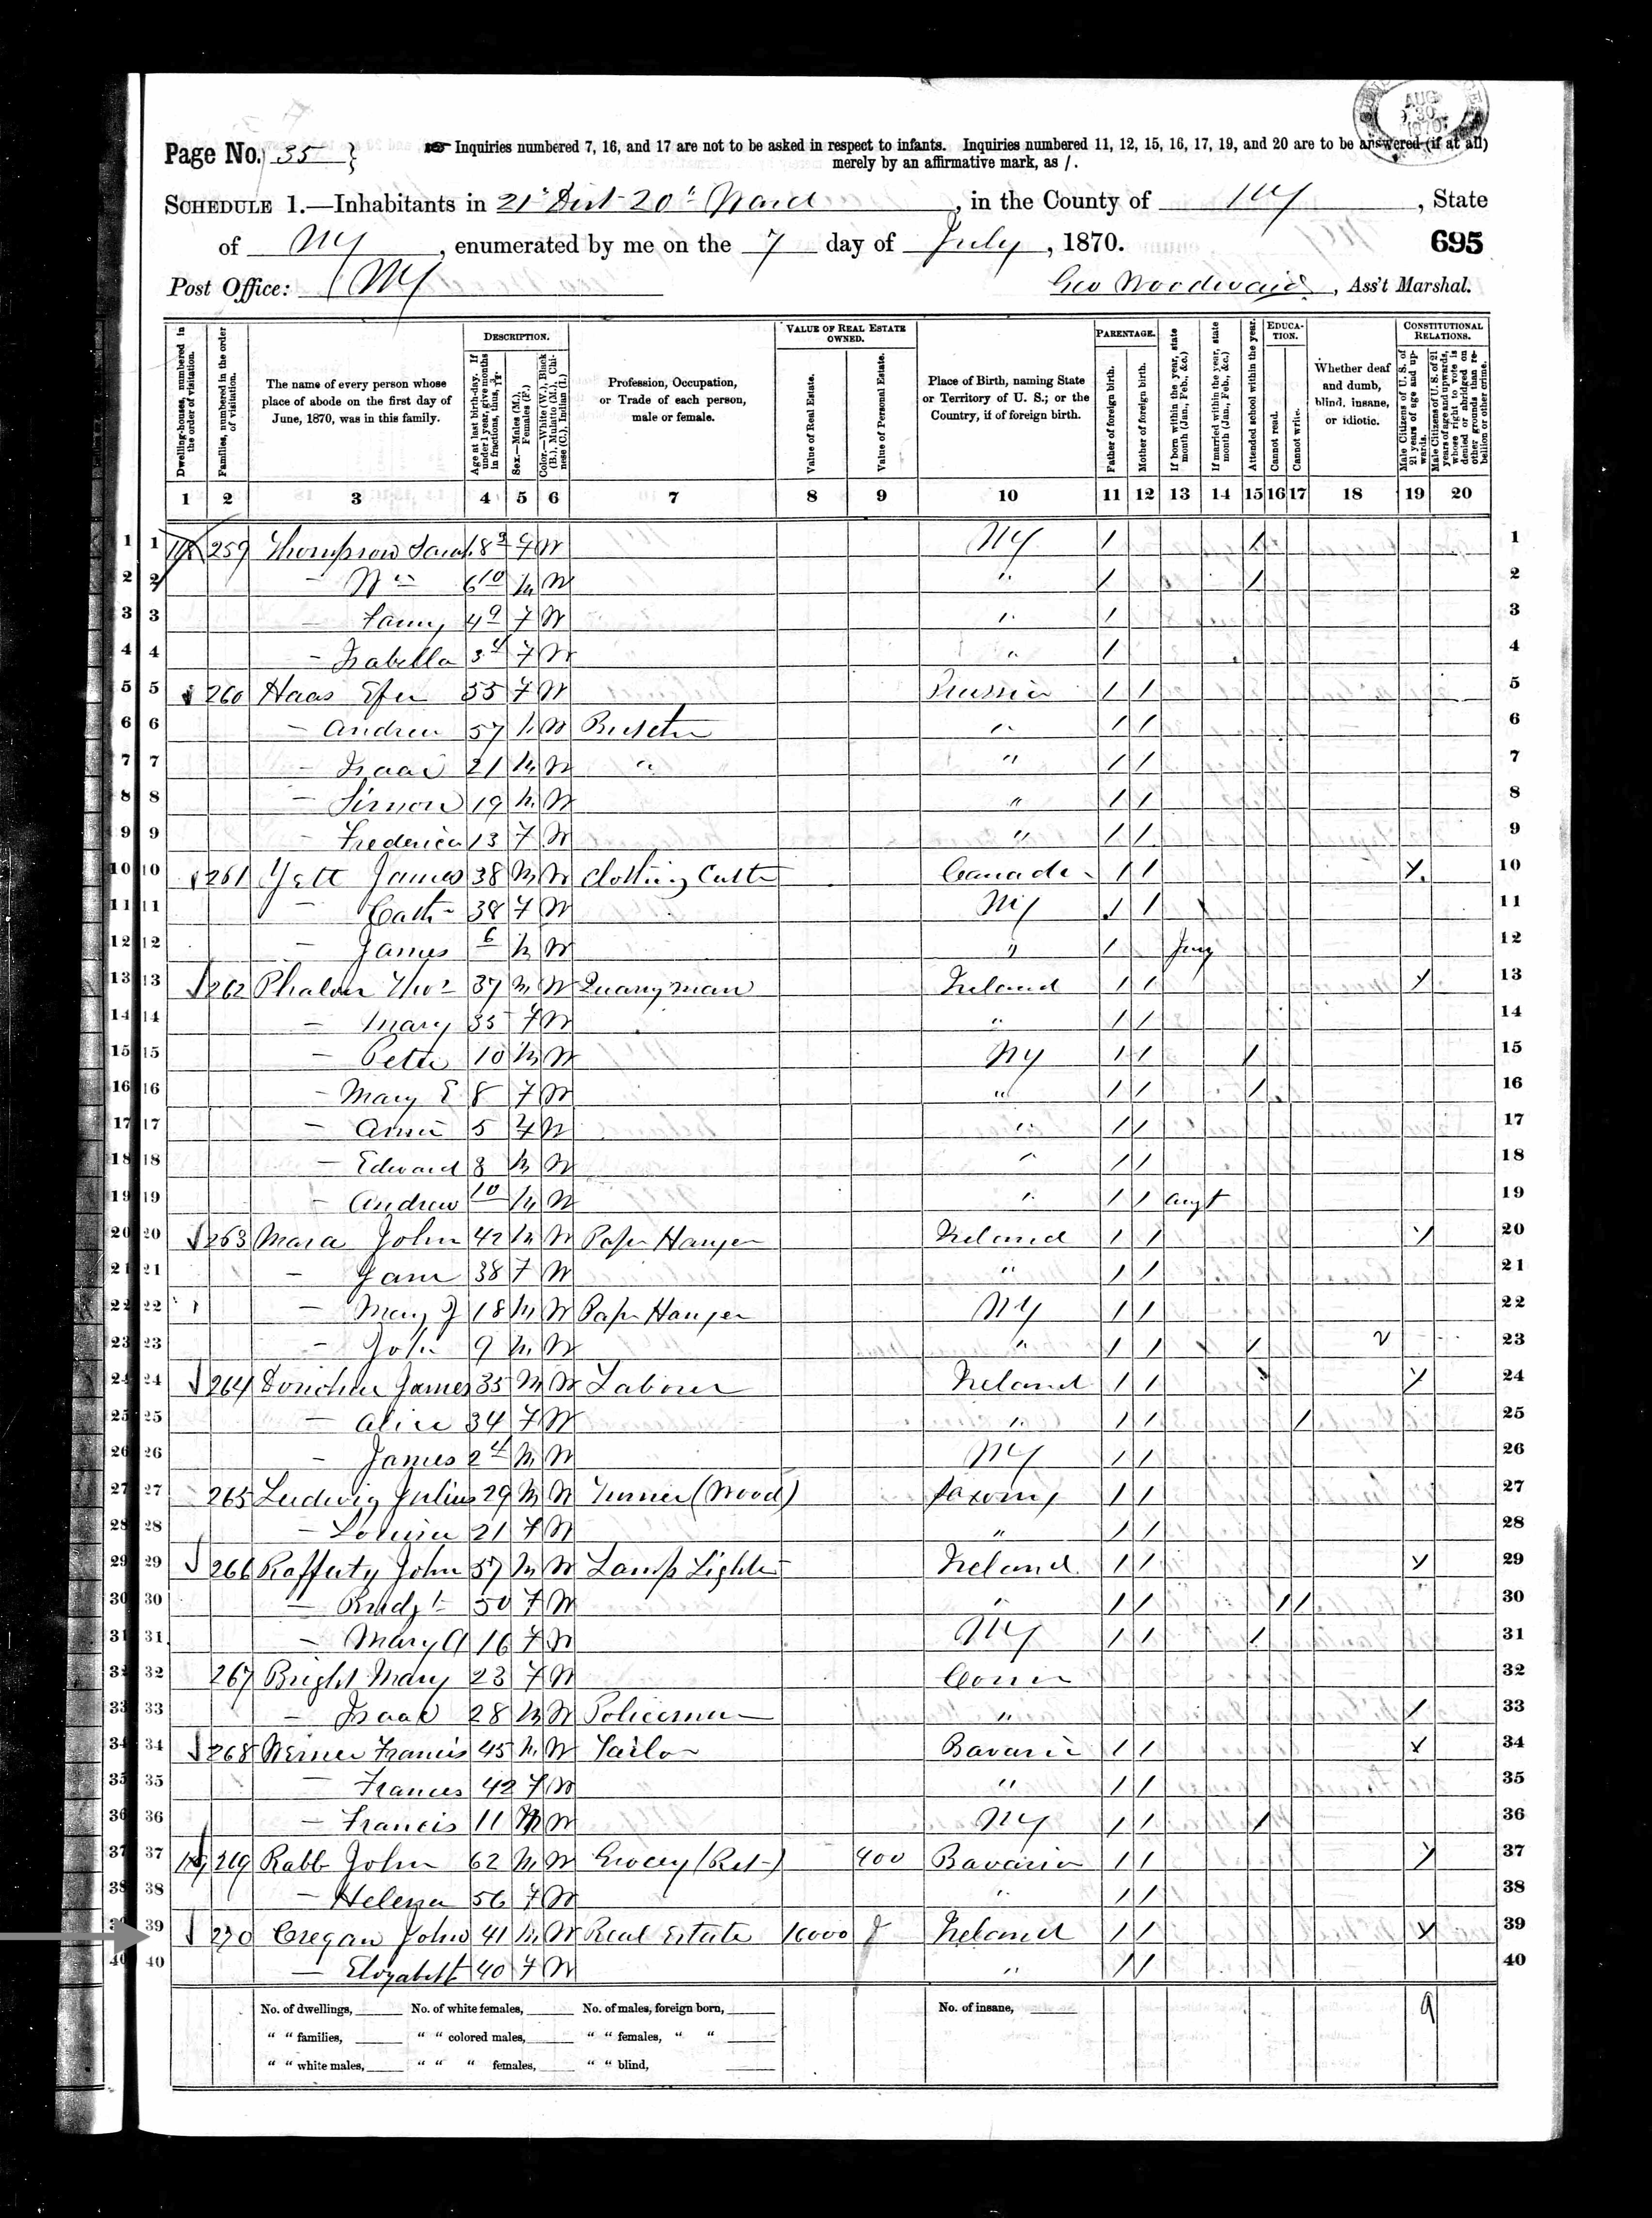 AUG 30 1870
Page No. 35
Inquiries numbered 7, 16, and 17 are not to be asked in respect to infants. Inquiries numbered 11, 12, 15, 16, 17, 19, and 20 are to be answered (if at all) merely by an affirmative mark, as /.
SCHEDULE 1.—Inhabitants in 21st Dist 20th Ward, in the County of NY, State
of NY, enumerated by me on the 7 day of July, 1870.
695
Post Office: NY
Geo Woodward, Ass't Marshal.
Dwelling-houses, numbered in the order of visitation.
Families, numbered in the order of visitation.
The name of every person whose place of abode on the first day of June, 1870, was in this family.
DESCRIPTION.
Age at last birth-day. If under 1 year, give months in fractions, thus, 3/12.
Sex.—Males (M.), Females (F.)
Color.—White (W.), Black (B.), Mulatto (M.), Chinese (C.), Indian (I.)
Profession, Occupation, or Trade of each person, male or female.
VALUE OF REAL ESTATE OWNED.
Value of Real Estate.
Value of Personal Estate.
Place of Birth, naming State or Territory of U. S.; or the Country, if of foreign birth.
PARENTAGE.
Father of foreign birth.
Mother of foreign birth.
If born within the year, state month (Jan., Feb., &c.)
If married within the year, state month (Jan., Feb., &c.)
Attended school within the year.
EDUCATION.
Cannot read.
Cannot write.
Whether deaf and dumb, blind, insane, or idiotic.
CONSTITUTIONAL RELATIONS.
Male Citizens of U. S. of 21 years of age and upwards.
Male Citizens of U. S. of 21 years of age and upwards, whose right to vote is denied or abridged on other grounds than rebellion or other crime.
1 2 3 4 5 6 7 8 9 10 11 12 13 14 15 16 17 18 19 20
1 259 Thompson 8 F W NY / / 1
2 — Wm 6 10 M W " / / 2
3 — Fanny 4 9 F W " / 3
4 — Isabella 3 4 F W " / 4
5 260 Haas 55 F W Prussia / / 5
6 — Andrew 57 M W " / / 6
7 — Isaac 21 M W " " / / 7
8 — Simon 19 M W " / / 8
9 — Frederica 13 F W " / / 9
10 261 Yett James 38 M W Clothing Cutter Canada / / / 10
11 — Cath 38 F W NY / / 11
12 — James 6 M W " / 12
13 262 Phalon Thos 37 M W Quarryman Ireland / / / 13
14 — Mary 35 F W " / / 14
15 — Peter 10 M W NY / / / 15
16 — Mary E 8 F W " / / / 16
17 — Annie 5 F W " / / 17
18 — Edward 3 M W " / / 18
19 — Andrew 10 M W " / / Augt 19
20 263 Mara John 42 M W Paper Hanger Ireland / / / 20
21 — Jane 38 F W " / / 21
22 — Mary J 18 M W Paper Hanger NY / / 22
23 — John 9 M W " / / / 23
24 264 James 35 M W Laborer Ireland / / / 24
25 — Alice 34 F W " / / / 25
26 — James 2 4 M W NY / / 26
27 265 Ludwig Julius 29 M W Turner (Wood) Saxony / / 27
28 — Louisa 21 F W " / / 28
29 266 Rafferty John 57 M W Lamp Lighter Ireland / / / 29
30 — Bridgt 50 F W " / / / / 30
31 — Mary A 16 F W NY / / / 31
32 267 Bright Mary 23 F W Conn 32
33 — Isaac 28 M W Policeman " / 33
34 268 Werner Francis 45 M W Tailor Bavaria / / / 34
35 — Frances 42 F W " / / 35
36 — Francis 11 M W NY / / / 36
37 269 Rabb John 62 M W Grocery (Ret) 400 Bavaria / / / 37
38 — Helena 56 F W " / / 38
39 270 Cregan John 41 M W Real Estate 16000 Ireland / / / 39
40 — Elizabeth 40 F W " / / 40
No. of dwellings, No. of white females, No. of males, foreign born, No. of insane, 9
" " families, " " colored males, " " females, " "
" " white males, " " " females, " " blind,